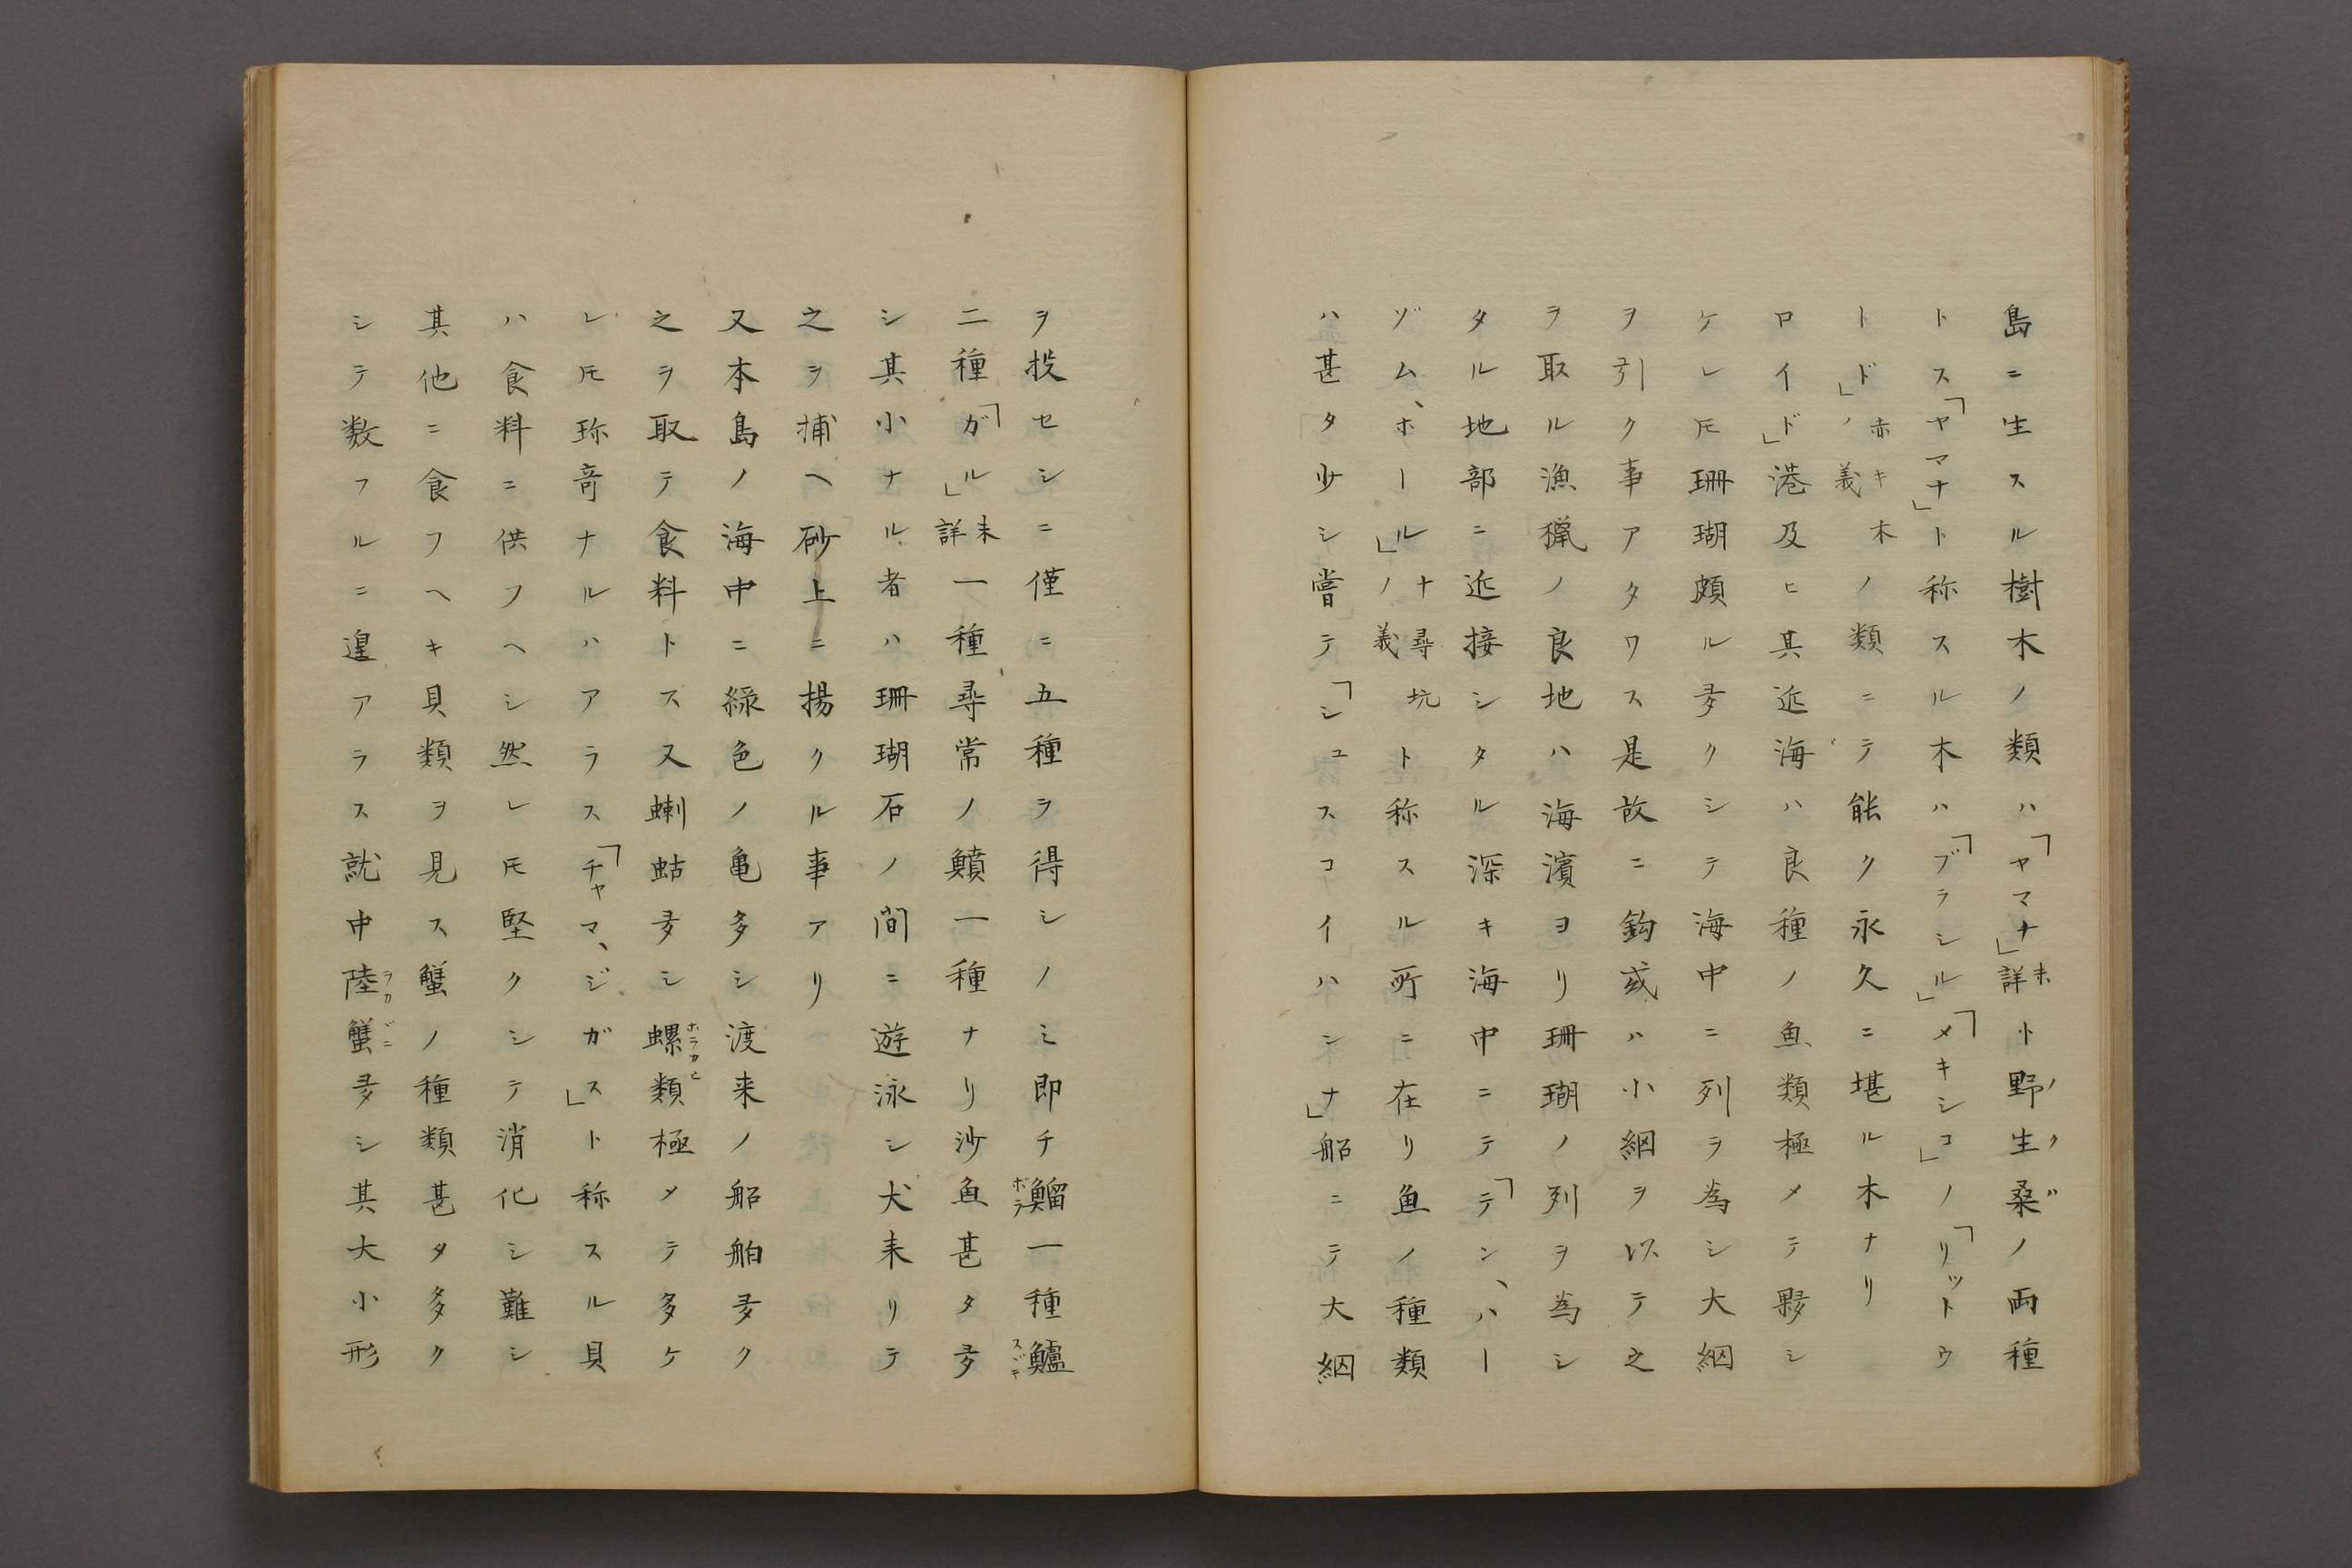 島ニ生スル樹木ノ類ハ「ヤマナ」未詳ト野生桑ノ両種
トス「ヤマナ」ト称スル木ハ「ブラシル」「メキシコ」ノ「リットウ
トド」赤キ木ノ義ノ類ニテ能ク永久ニ堪ル木ナリ
ロイド」港及ヒ其近海ハ良種ノ魚類極メテ夥シ
ケレ𪜈珊瑚頗ル多クシテ海中ニ列ヲ為シ大網
ヲ引ク事アタワス是故ニ鈎或ハ小網ヲ以テ之
ヲ取ル漁猟ノ良地ハ海濱ヨリ珊瑚ノ列ヲ為シ
タル地部ニ近接シタル深キ海中ニテ「テン、ハー
ゾム、ホール」十尋坑ノ義ト称スル所ニ在リ魚ノ種類
ハ甚タ少シ嘗テ「シュスコイハンナ」船ニテ大網
ヲ投セシニ僅ニ五種ヲ得シノミ即チ鰡一種鱸
二種「ガル」未詳一種尋常ノ鱝一種ナリ沙魚甚タ多
シ其小ナル者ハ珊瑚石ノ間ニ遊泳シ犬来リテ
之ヲ捕ヘ砂上ニ揚クル事アリ
又本島ノ海中ニ緑色ノ亀多シ渡来ノ船舶多ク
之ヲ取テ食料トス又蝲蛄多シ螺類極メテ多ケ
レ𪜈珎奇ナルハアラス「チャマ、ジガス」ト称スル貝
ハ食料ニ供フヘシ然レ𪜈堅クシテ消化シ難シ
其他ニ食フヘキ貝類ヲ見ス蟹ノ種類甚タ多ク
シテ数フルニ遑アラス就中陸蟹多シ其大小形
ノクハ
ボラ
スヾキ
ホラカヒ
ヲカガニ